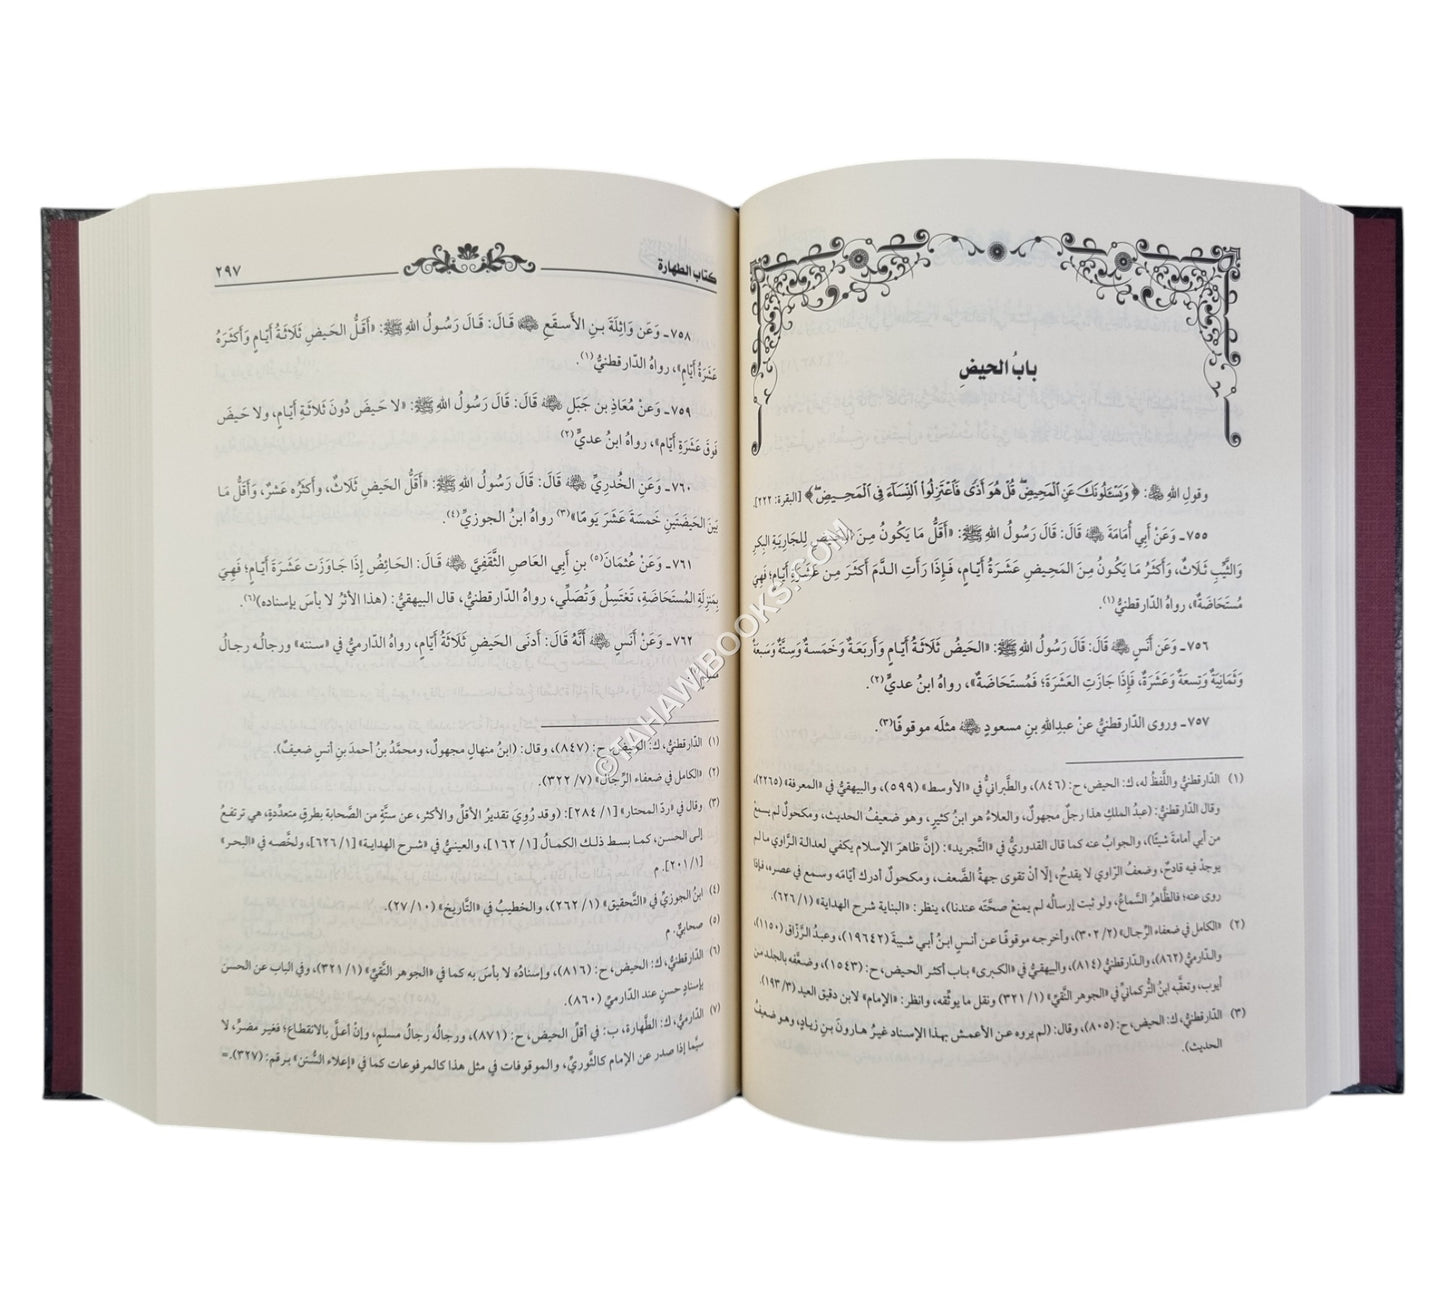 بابُ الحيضِ
وقولِ اللهِ ﷻ: ﴿وَيَسْـَٔلُونَكَ عَنِ ٱلْمَحِيضِ ۖ قُلْ هُوَ أَذًى فَٱعْتَزِلُوا۟ ٱلنِّسَآءَ فِى ٱلْمَحِيضِ ۖ﴾ [البقرة: ٢٢٢].
٧٥٥ـ وَعَنْ أَبِي أُمَامَةَ ﷺ قَالَ: قَالَ رَسُولُ اللهِ ﷺ: «أَقَلُّ مَا يَكُونُ مِنَ الحَيْضِ لِلجَارِيَةِ البِكرِ
وَالثَّيِّبِ ثَلَاثٌ، وَأَكثَرُ مَا يَكُونُ مِنَ المَحِيضِ عَشَرَةُ أَيَّامٍ، فَإِذَا رَأَتِ الدَّمَ أَكثَرَ مِن عَشَرَةِ أَيَّامٍ؛ فَهِيَ
مُستَحَاضَةٌ»، رواهُ الدّارقطنيُّ(١).
٧٥٦ـ وَعَن أَنَسٍ قَالَ: قَالَ رَسُولُ اللهِ ﷺ: «الحَيضُ ثَلَاثَةُ أَيَّامٍ وَأَربَعَةٌ وَخَمسَةٌ وَسِتَّةٌ وَسَبعَةٌ
وَثَمَانِيَةٌ وَتِسعَةٌ وَعَشَرَةٌ، فَإِذَا جَازَتِ العَشَرَةَ؛ فَمُستَحَاضَةٌ»، رواهُ ابنُ عديٍّ(٢).
٧٥٧ـ وروى الدّارقطنيُّ عنْ عبدِاللهِ بنِ مسعودٍ مثلَه موقوفًا(٣).
(١) الدّارقطنيُّ واللَّفظُ له، ك: الحيض، ح: (٨٤٦)، والطَّبرانيُّ في «الأوسط» (٥٩٩)، والبيهقيُّ في «المعرفة» (٢٢٦٥)
وقال الدّارقطنيُّ: (عبدُ الملكِ هذا رجلٌ مجهولٌ، والعلاءُ هو ابنُ كثيرٍ، وهو ضعيفُ الحديث، ومكحولٌ لم يسمعْ
من أبي أمامةَ شيئًا)، والجوابُ عنه كما قال القدوريُّ في «التَّجريد»: (إنَّ ظاهرَ الإسلام يكفي لعدالة الرَّاوي ما لم
يوجدْ فيه قادحٌ، وضعفُ الرَّاوي لا يقدحُ، إلّا أنْ تقوى جهةُ الضَّعف، ومكحولٌ أدرك أيّامَه وسمع في عصره، فإذا
روى عنه؛ فالظَّاهرُ السَّماعُ، ولو ثبت إرسالُه لم يمنعْ صحَّتَه عندنا)، ينظر: «البناية شرح الهداية» (١/ ٦٢٦).
(٢) «الكامل في ضعفاء الرِّجال» (٢/ ٣٠٢)، وأخرجه موقوفًا عن أنسٍ ابنُ أبي شيبةَ (١٩٦٤٢)، وعبدُ الرَّزّاق (١١٥٠)،
والدّارميُّ (٨٦٢)، والدّارقطنيُّ (٨١٤)، والبيهقيُّ في «الكبرى» باب أكثر الحيض، ح: (١٥٤٣)، وضعَّفه بالجلد من
أيوب، وتعقَّبه ابنُ التُّركمانيِّ في «الجوهر النَّقيِّ» (١/ ٣٢١) ونقل ما يوثِّقه، وانظر: «الإمام» لابن دقيق العيد (٣/ ١٩٣).
(٣) الدّارقطنيُّ، ك: الحيض، ح: (٨٠٥)، وقال: (لم يروه عن الأعمش بهذا الإسناد غيرُ هارونَ بنِ زيادٍ، وهو ضعيفُ
الحديث).
كتاب الطهارة
٢٩٧
٧٥٨ـ وَعَن وَاثِلَةَ بنِ الأَسقَعِ قَالَ: قَالَ رَسُولُ اللهِ ﷺ: «أَقَلُّ الحَيضِ ثَلَاثَةُ أَيَّامٍ وَأَكثَرُهُ
عَشَرَةُ أَيَّامٍ»، رواهُ الدّارقطنيُّ(١).
٧٥٩ـ وَعَنْ مُعَاذِ بنِ جَبَلٍ قَالَ: قَالَ رَسُولُ اللهِ ﷺ: «لا حَيضَ دُونَ ثَلَاثَةِ أَيَّامٍ، ولا حَيضَ
فَوقَ عَشَرَةِ أَيَّام»، رواهُ ابنُ عديٍّ(٢)
٧٦٠ـ وَعَنِ الخُدرِيِّ قَالَ: قَالَ رَسُولُ اللهِ ﷺ: «أَقَلُّ الحَيضِ ثَلَاثٌ، وأَكثَرُه عَشرٌ، وَأَقَلُّ مَا
بَينَ الحَيضَتَينِ خَمسَةَ عَشَرَ يَومًا»(٣) رواهُ ابنُ الجوزيِّ(٤).
٧٦١ـ وَعَنْ عُثمَانَ(٥) بنِ أَبِي العَاصِ الثَّقَفِيِّ قَالَ: الحَائِضُ إِذَا جَاوَزَت عَشَرَةَ أَيَّامٍ؛ فَهِيَ
بِمَنزِلَةِ المُستَحَاضَةِ، تَغتَسِلُ وَتُصَلِّي، رواهُ الدّارقطنيُّ، قال البيهقيُّ: (هذا الأثرُ لا بأسَ بإسنادِه)(٦).
٧٦٢ـ وَعَنْ أَنَسٍ أَنَّهُ قَالَ: أَدنَى الحَيضِ ثَلَاثَةُ أَيَّامٍ، رواهُ الدّارميُّ في «سننه» ورجالُه رجالُ
(١) الدّارقطنيُّ، ك: الحيض، ح: (٨٤٧)، وقال: (ابنُ منهالٍ مجهولٌ، ومحمَّدُ بنُ أحمدَ بنِ أنسٍ ضعيفٌ).
(٢) «الكامل في ضعفاء الرِّجال» (٧/ ٣٢٢).
(٣) وقال في «ردّ المحتار» [١/ ٢٨٤]: (وقد رُويَ تقديرُ الأقلِّ والأكثرِ، عن ستَّةٍ من الصَّحابة بطرقٍ متعدِّدةٍ، هي ترتفعُ
إلى الحسن، كما بسط ذلك الكمالُ [١/ ١٦٢]، والعينيُّ في «شرح الهداية» [١/ ٦٢٦]، ولخَّصه في «البحر»
[١/ ٢٠١]. م
(٤) ابنُ الجوزيِّ في «التَّحقيق» (١/ ٢٦٢)، والخطيبُ في «التَّاريخ» (١٠/ ٢٧).
(٥) صحابيٌّ. م
(٦) الدّارقطنيُّ، ك: الحيض، ح: (٨١٦)، وإسنادُه لا بأسَ به كما في «الجوهر النَّقيِّ» (١/ ٣٢١)، وفي الباب عن الحسن
بإسنادٍ حسنٍ عند الدّارميِّ (٨٦٠).
(٧) الدّارميُّ، ك: الطَّهارة، ب: في أقلِّ الحيض، ح: (٨٧١)، ورجالُه رجالُ مسلمٍ، وإنْ أعلَّ بالانقطاع؛ فغير مضرٍّ، لا
سيَّما إذا صدر عن الإمام كالثَّوريِّ، والموقوفات في مثل هذا كالمرفوعات كما في «إعلاء السُّنن» برقم: (٣٢٧).=
©TAHAWIBOOKS.COM